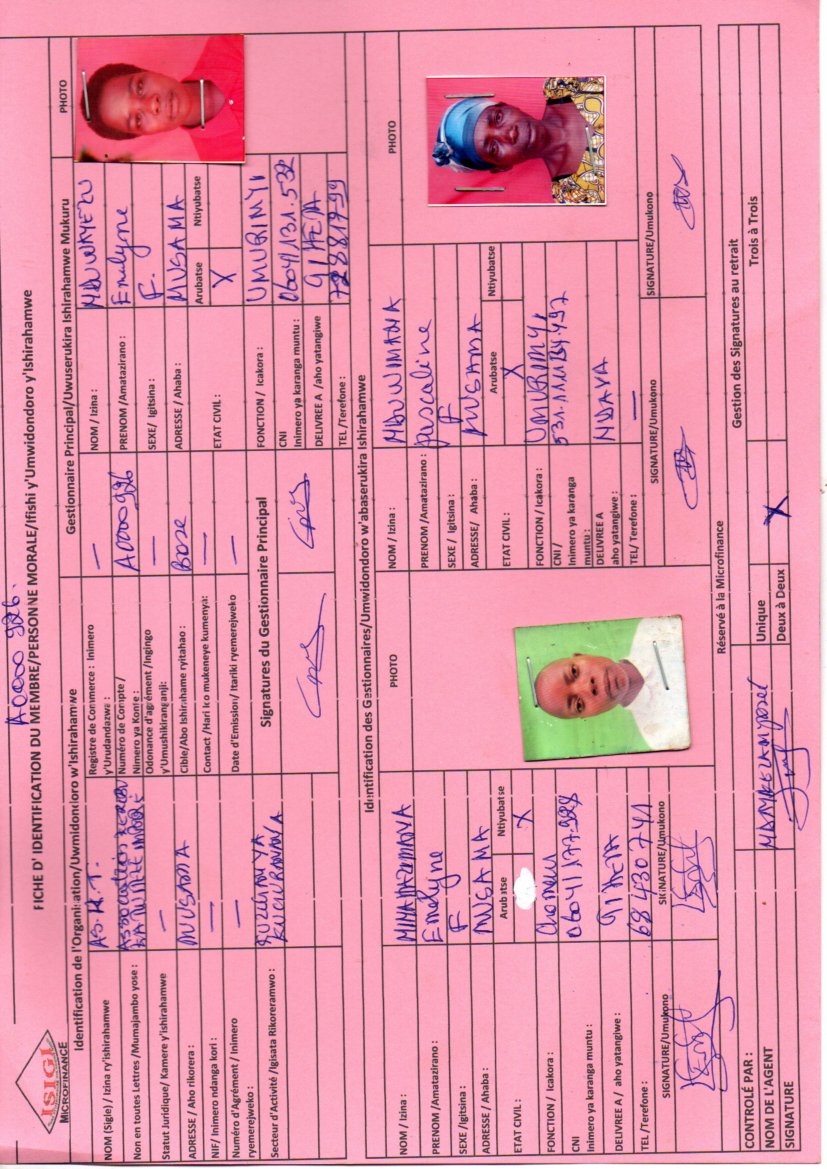 A0000 926.
ISIGI
MICROFINANCE
FICHE D' IDENTIFICATION DU MEMBRE/PERSONNE MORALE/Ifishi y'Umwidondoro y'Ishirahamwe
Identification de l'Organisation/Uwmidondoro w'Ishirahamwe
NOM (Sigle) / Izina ry'ishirahamwe
AS.K.T.
Non en toutes Lettres /Mumajambo yose :
Association
Statut Juridique/ Kamere y'Ishirahamwe
—
ADRESSE / Aho rikorera :
MUSAMA
NIF/ Inimero ndanga kori :
—
Numéro d'Agrément / Inimero
ryemerejweko :
—
Secteur d'Activité /Igisata Rikoreramwo :
Registre de Commerce : Inimero
y'Urudandazwa :
—
Numéro de Compte /
Nimero ya Konte :
A0000 926
Odonance d'agrément /Ingingo
y'Umushikiranganji:
—
Cible/Abo Ishirahame ryitahao :
Base
Contact /Hari ico mukeneye kumenya:
—
Date d'Emission/ Itariki ryemerejweko
—
Signatures du Gestionnaire Principal
Gestionnaire Principal/Uwuserukira Ishirahamwe Mukuru
PHOTO
NOM / Izina :
PRENOM /Amatazirano :
Emelyne
SEXE/ Igitsina :
F.
ADRESSE / Ahaba :
MUSAMA
ETAT CIVIL :
Arubatse
Ntiyubatse
X
FONCTION / Icakora :
UMURIMYI
CNI
Inimero ya karanga muntu :
0604/131.532
DELIVREE A /aho yatangiwe
GIHETA
TEL /Terefone :
72881799
Identification des Gestionnaires/Umwidondoro w'abaserukira Ishirahamwe
NOM / Izina :
PRENOM /Amatazirano :
Emelyne
SEXE /Igitsina :
F
ADRESSE / Ahaba :
MUSAMA
ETAT CIVIL :
Arubatse
Ntiyubatse
X
FONCTION / Icakora :
Chomeur
CNI
Inimero ya karanga muntu :
0604/177.928
DELIVREE A / aho yatangiwe :
GIHETA
TEL /Terefone :
68430741
SIGNATURE/Umukono
SIGNATURE/Umukono
PHOTO
NOM / Izina :
MBUWIMANA
PRENOM /Amatazirano :
Pascaline
SEXE / Igitsina :
F
ADRESSE/ Ahaba :
MUSAMA
ETAT CIVIL :
Arubatse
Ntiyubatse
X
FONCTION / Icakora :
UMURIMYI
CNI /
Inimero ya karanga
muntu :
DELIVREE A
aho yatangiwe :
NDAVA
TEL/ Terefone :
—
SIGNATURE/Umukono
SIGNATURE/Umukono
PHOTO
Réservé à la Microfinance
CONTROLÉ PAR :
NOM DE L'AGENT
SIGNATURE
Gestion des Signatures au retrait
Unique
Deux à Deux
X
Trois à Trois